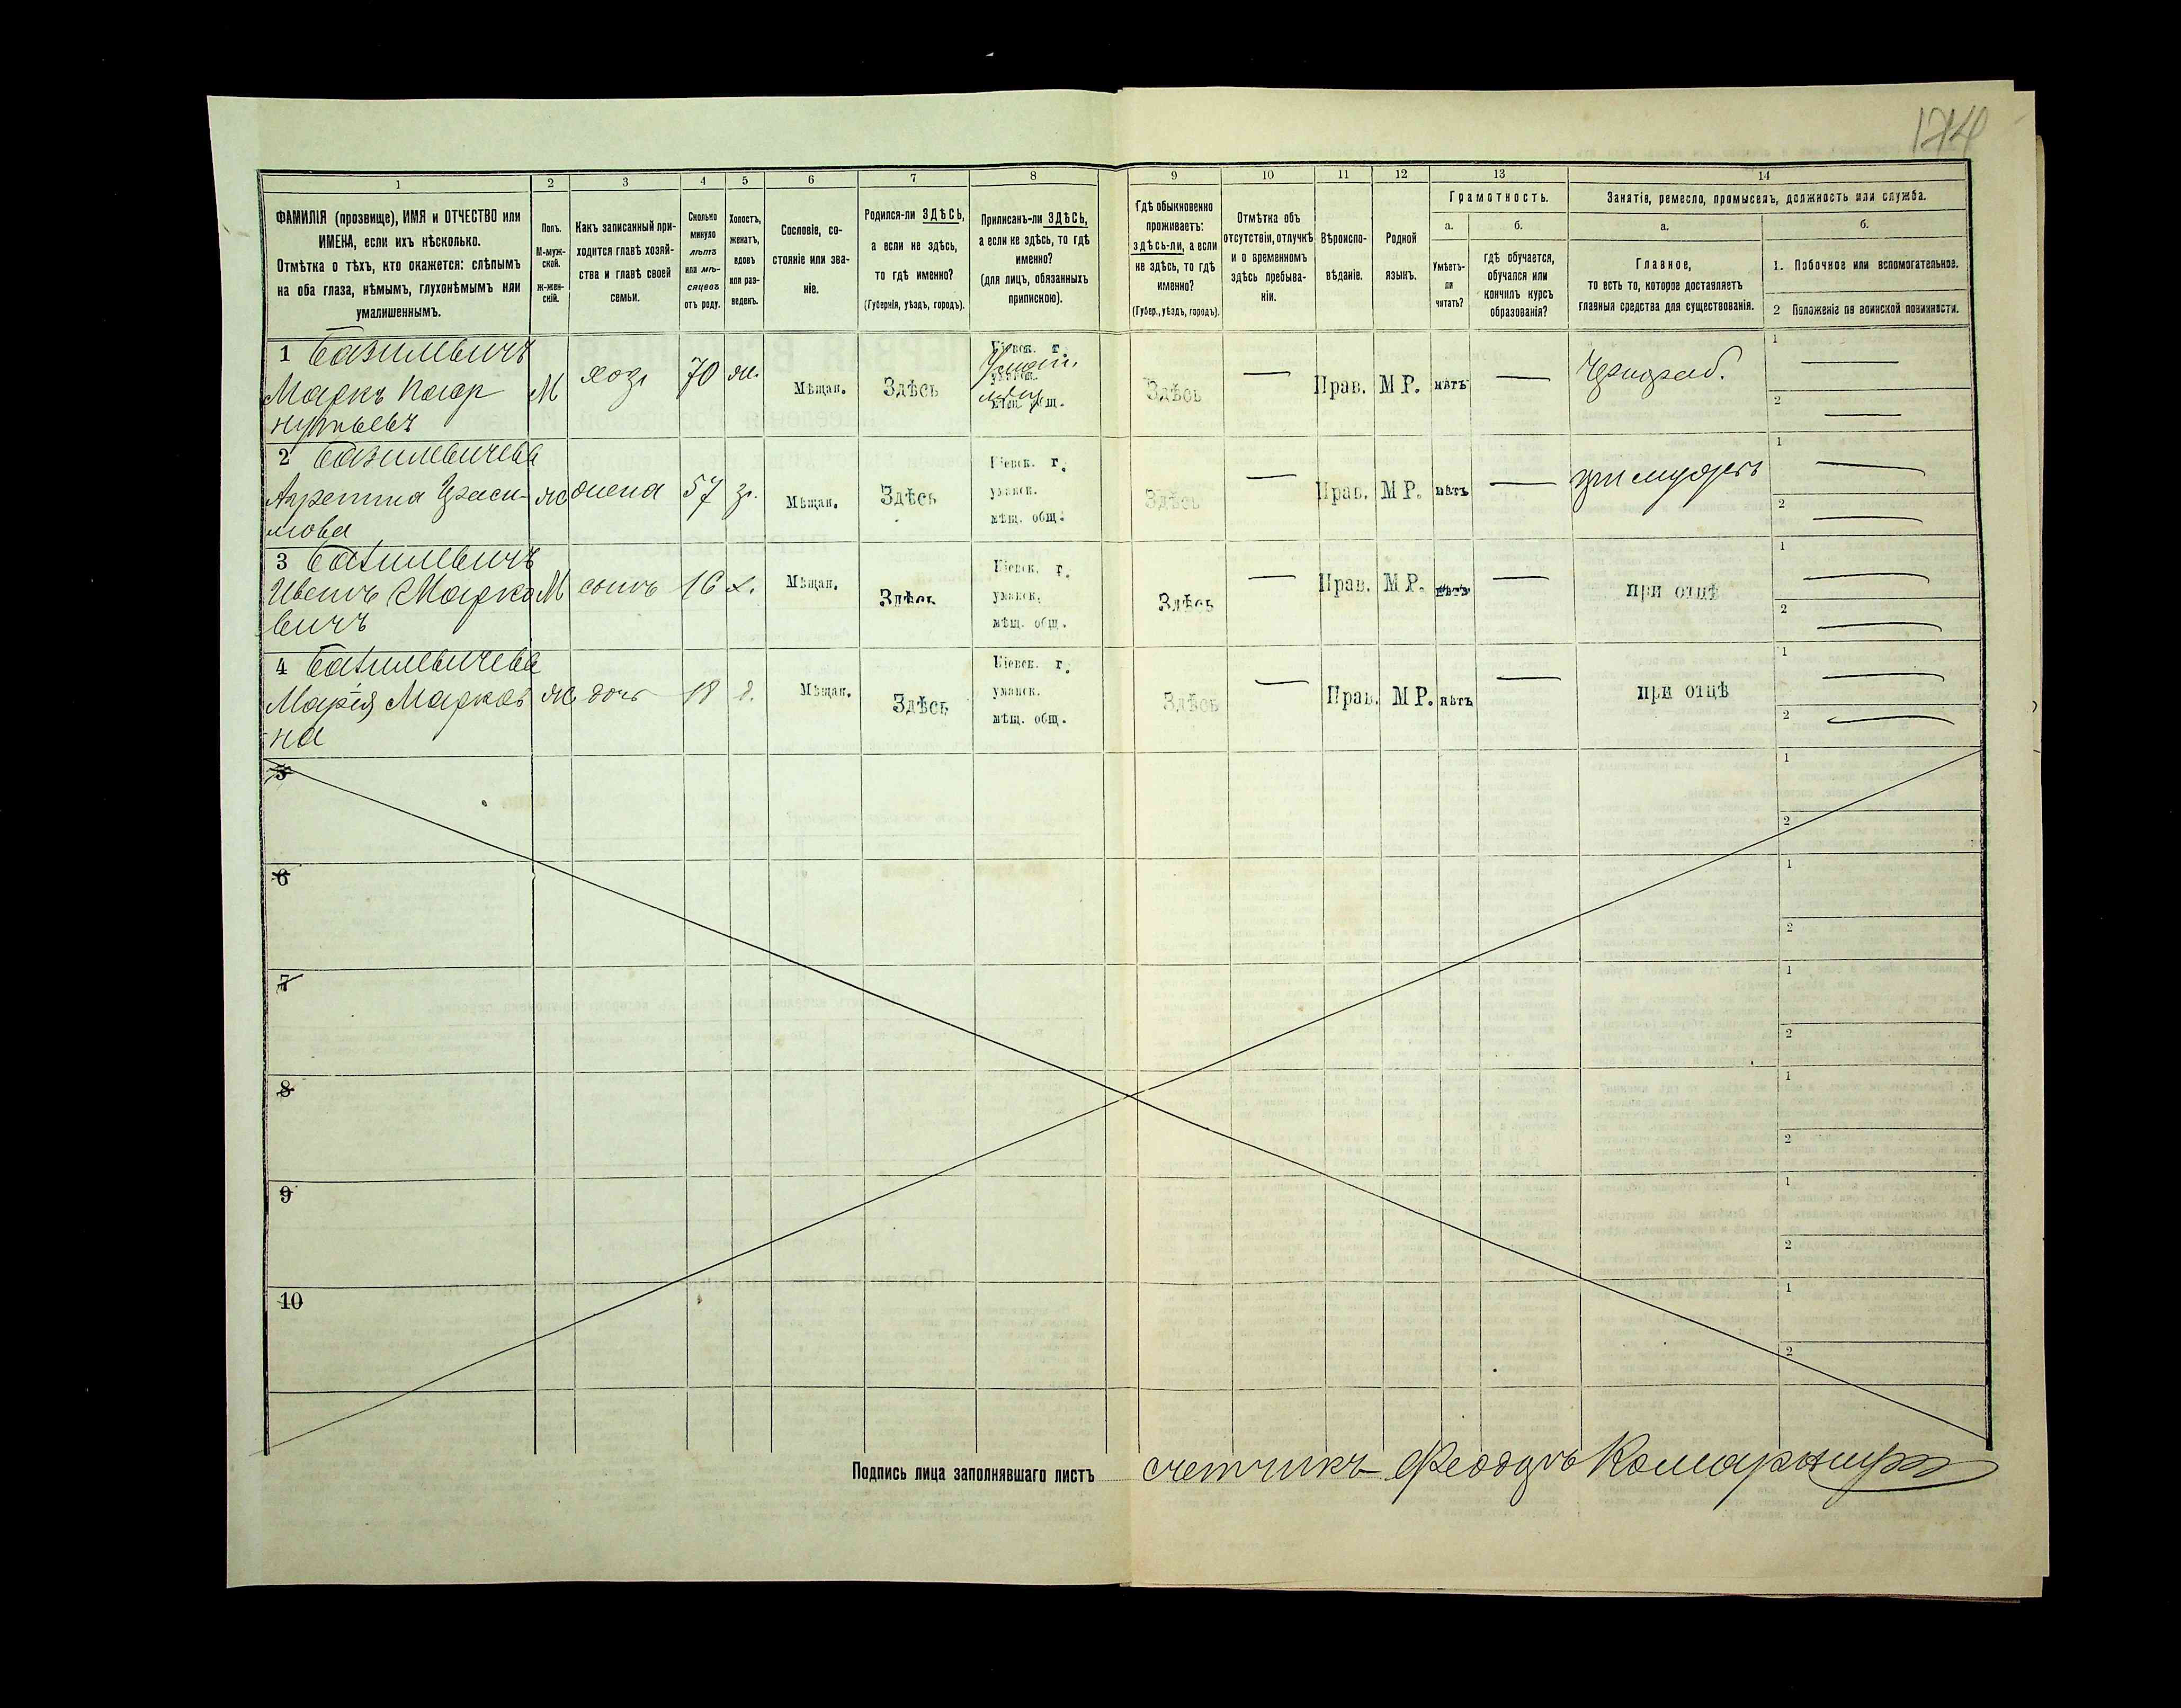 174
1 2 3 4 5 6 7 8 9 10 11 12 13 14
ФАМИЛІЯ (прозвище), ИМЯ и ОТЧЕСТВО или
ИМЕНА, если ихъ нѣсколько.
Отмѣтка о тѣхъ, кто окажется: слѣпымъ
на оба глаза, нѣмымъ, глухонѣмымъ или
умалишеннымъ.
Полъ.
М-муж-
ской.
ж-жен-
скій.
Какъ записанный при-
ходится главѣ хозяй-
ства и главѣ своей
семьи.
Сколько
минуло
лѣтъ
или мѣ-
сяцевъ
отъ роду.
Холостъ,
женатъ,
вдовъ
или раз-
веденъ.
Сословіе, со-
стояніе или зва-
ніе.
Родился-ли ЗДѢСЬ,
а если не здѣсь,
то гдѣ именно?
(Губернія, уѣздъ, городъ).
Приписанъ-ли ЗДѢСЬ,
а если не здѣсь, то гдѣ
именно?
(для лицъ, обязанныхъ
припискою).
Гдѣ обыкновенно
проживаетъ:
здѣсь-ли, а если
не здѣсь, то гдѣ
именно?
(Губер., уѣздъ, городъ).
Отмѣтка объ
отсутствіи, отлучкѣ
и о временномъ
здѣсь пребыва-
ніи.
Вѣроиспо-
вѣданіе.
Родной
языкъ.
Грамотность.
а.
Умѣетъ-
ли
читать?
б.
гдѣ обучается,
обучался или
кончилъ курсъ
образованія?
Занятіе, ремесло, промыселъ, должность или служба.
а.
Главное,
то есть то, которое доставляетъ
главныя средства для существованія.
б.
1. Побочное или вспомогательное.
2 Положеніе по воинской повинности.
1 Базилевичъ
Маркъ
М хозя 70 Мѣщан. Здѣсь
Кіевск. г.
Здѣсь — Прав. М Р. нѣтъ — Чернораб.
1 —
2 —
2 Базилевичева
Герасимова
жена 57 з. Мѣщан. Здѣсь
Кіевск. г.
уманск.
мѣщ. общ.
Здѣсь — Прав. М Р. нѣтъ — при мужѣ
1 —
2 —
3 Базилевичъ
Марко
вичъ
М сынъ 16 х. Мѣщан. Здѣсь
Кіевск. г.
уманск.
мѣщ. общ.
Здѣсь — Прав. М Р. нѣтъ — при отцѣ
1 —
2 —
4 Базилевичева
Марія Марков
на
ж дочь 18 д. Мѣщан. Здѣсь
Кіевск. г.
уманск.
мѣщ. общ.
Здѣсь — Прав. М Р. нѣтъ — при отцѣ
1 —
2 —
5 1
2
6 1
2
7 1
2
8 1
2
9 1
2
10 1
2
Подпись лица заполнявшаго листъ счетчикъ Феодоръ